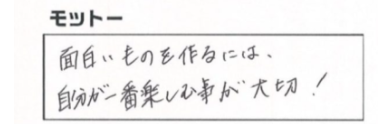 モットー
面白いものを作るには、
自分が一番楽しむ事が大切!